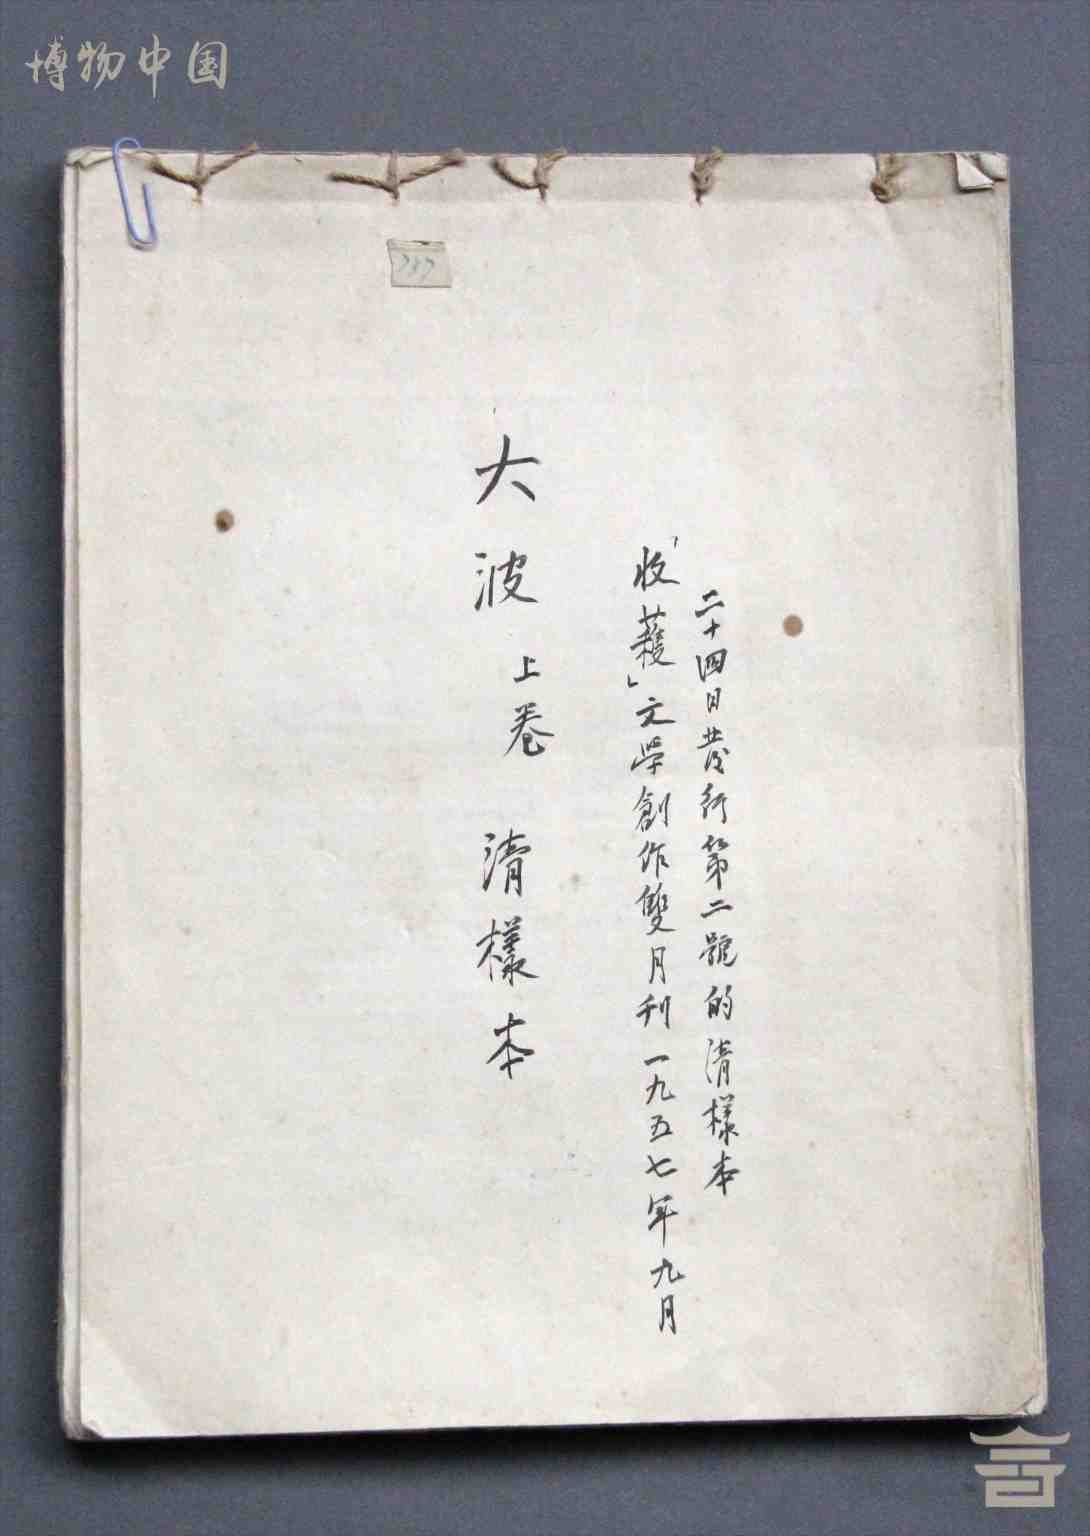 博物中国
大波 上卷 清樣本
「收穫」文學創作雙月刊一九五七年九月
二十四日發行第二號的清樣本